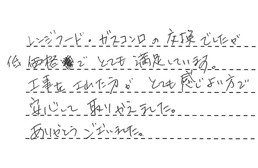 レンジフード・ガスコンロの交換でしたが
低価格でとても満足しています。
工事をされた方がとても感じよい方で
安心して取りかえました。
ありがとうございました。